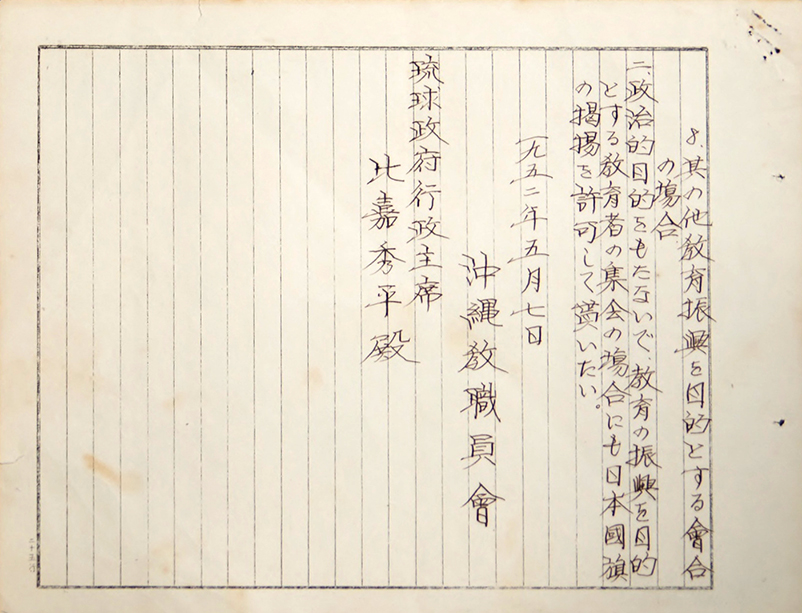 8.其の他教育振興を目的とする會合
の場合
二、政治的目的をもたないで、教育の振興を目的
とする教育者の集会の場合にも日本國旗
の掲揚を許可して貰いたい。
一九五二年五月七日
沖縄教職員會
琉球政府行政主席
比嘉秀平殿